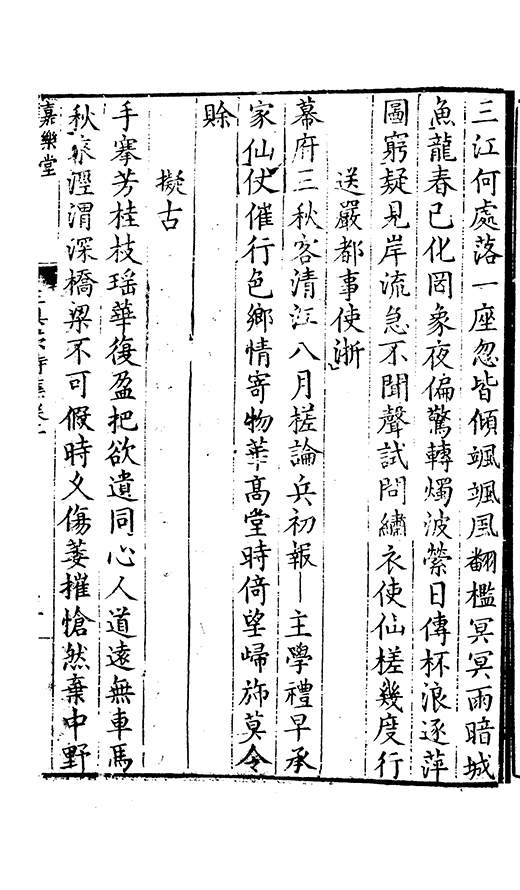 三江何處落一座忽皆傾颯颯風翻檻冥冥雨暗城
魚龍春已化罔象夜偏驚轉燭波縈日傳杯浪逐萍
圖窮疑見岸流急不聞聲試問繡衣使仙槎幾度行
送嚴都事使浙
幕府三秋客清江八月槎論兵初報主學禮早承
家仙仗催行色鄉情寄物華高堂時倚望歸斾莫令
賖
擬古
手搴芳桂枝瑶華復盈把欲遺同心人道遠無車馬
秋涇渭深橋梁不可假時夂傷萎摧愴然棄中野
嘉樂堂